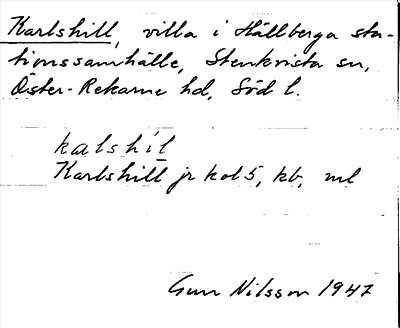 Karlshill, villa i Hållberga sta-
tionssamhälle, Stenkvista sn,
Öster-Rekarne hd, Söd l.
kalshil
Karlshill jr kol 5, kb, ml
Gun Nilsson 1947